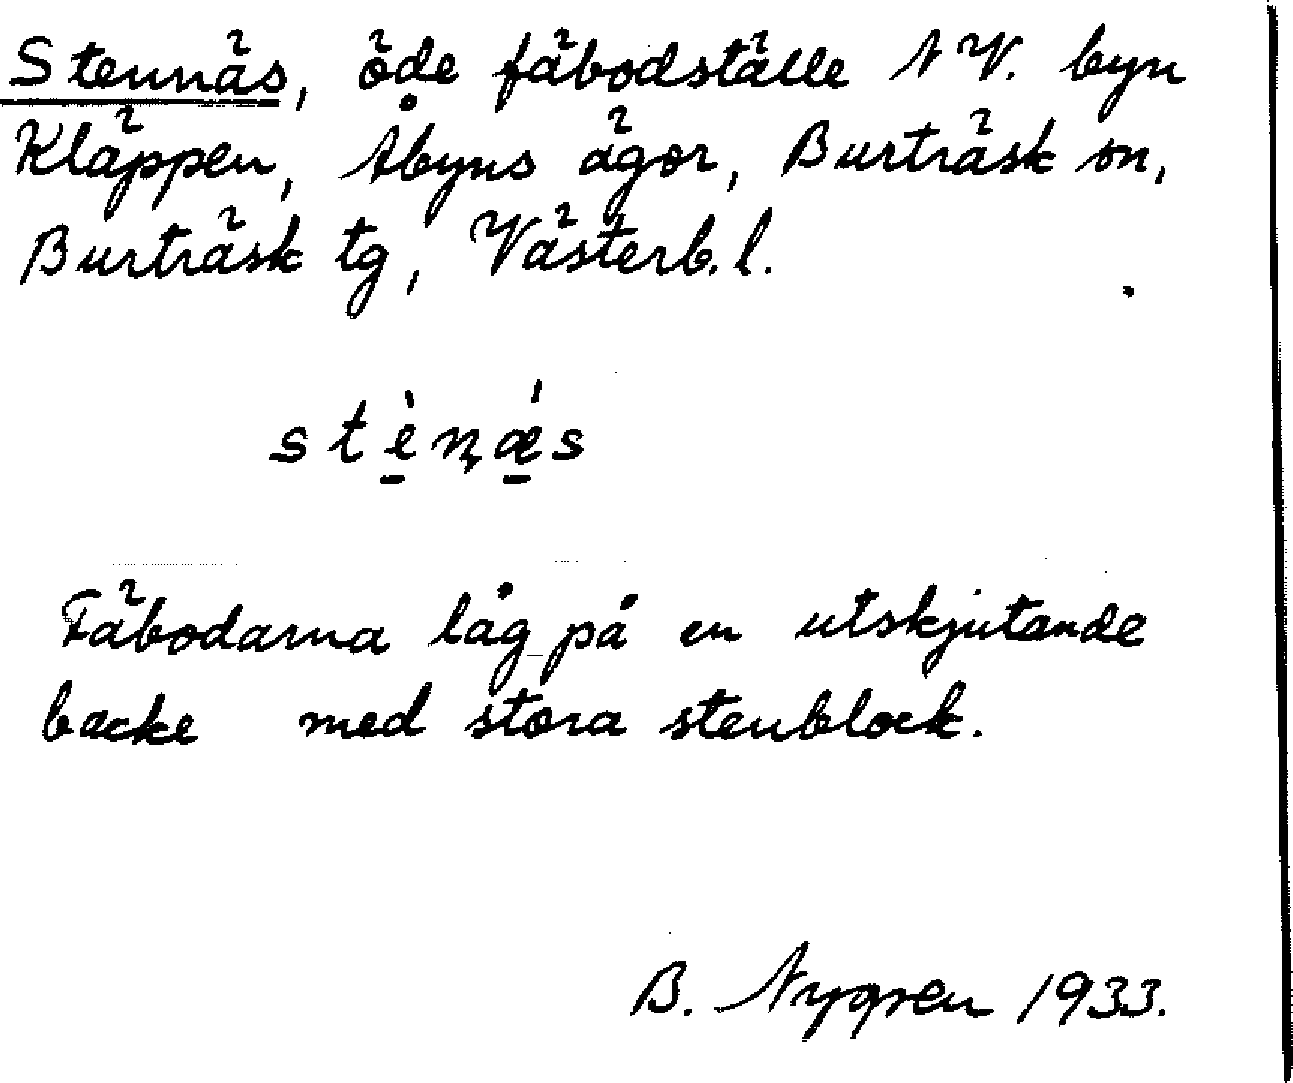 Stennäs, öde fäbodställe NV. byn
Kläppen, Åbyns ägor, Burträsk sn,
Burträsk tg, Västerb. l.
stè̱n̨ǽ̱s
Fäbodarna låg på en utskjutande
backe med stora stenblock.
B. Nygren 1933.